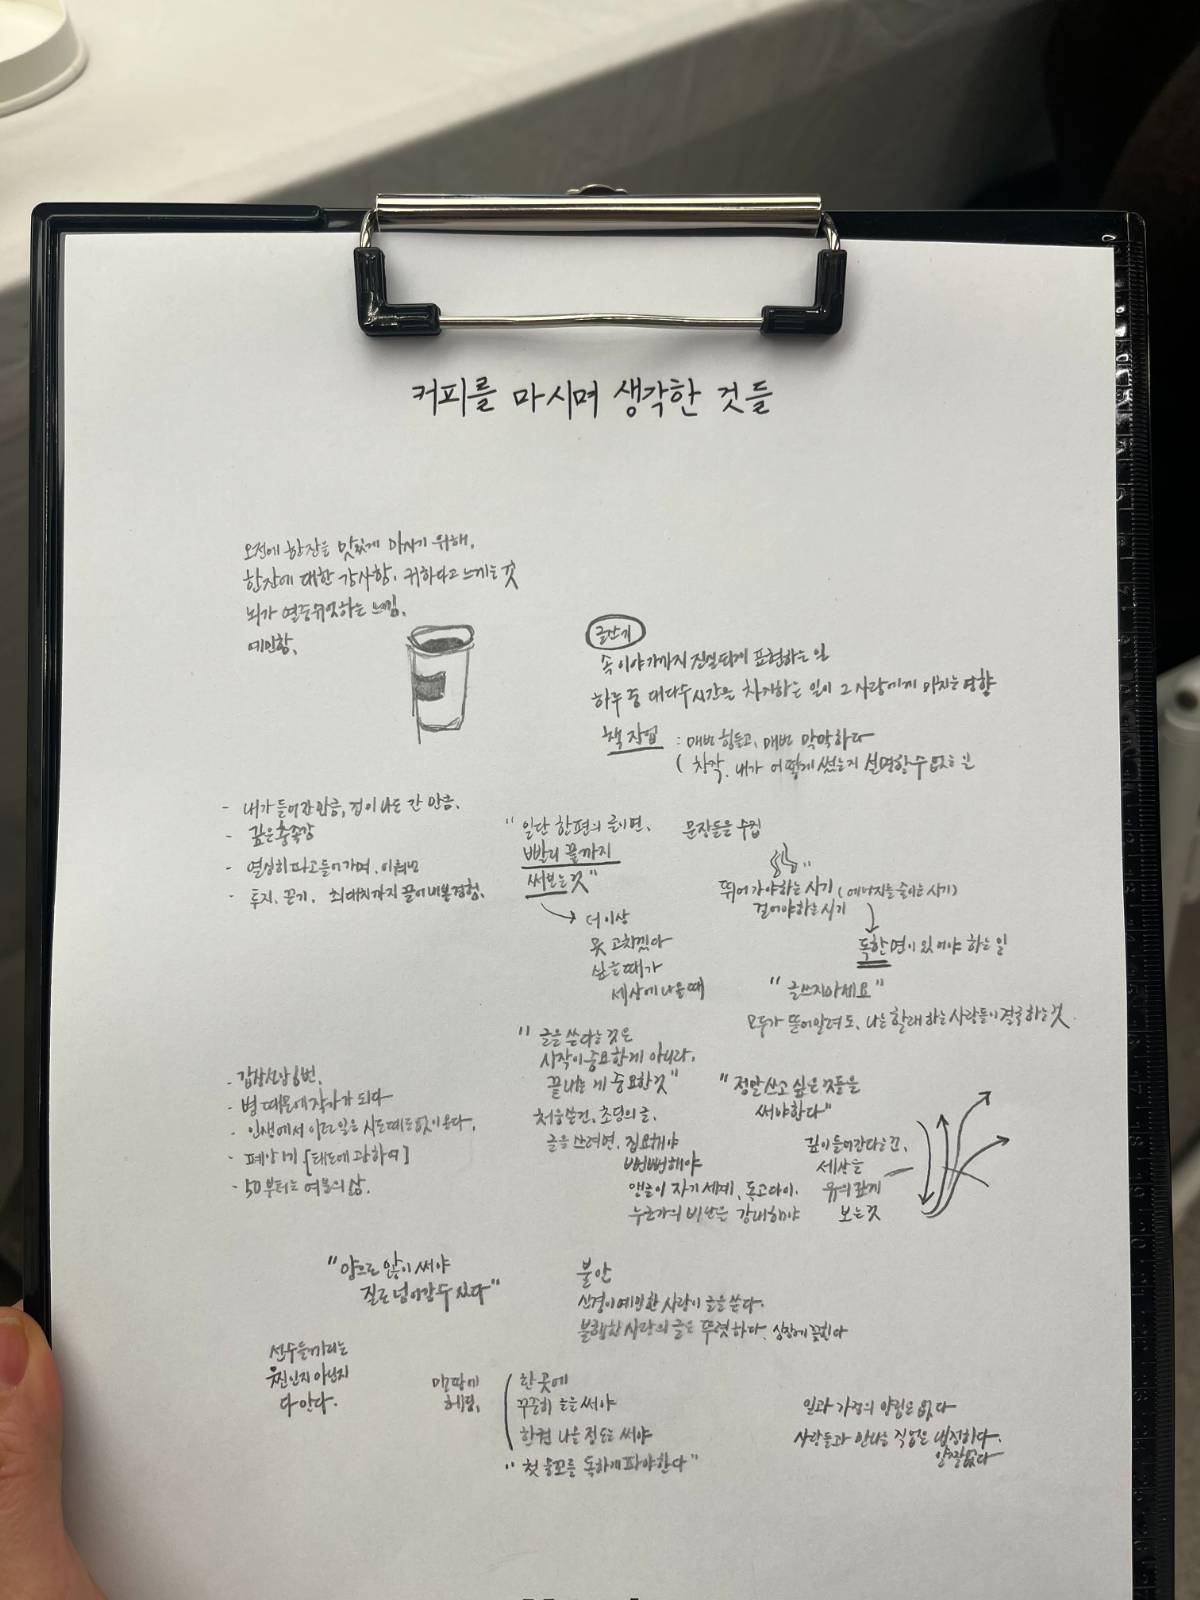 커피를 마시며 생각한 것들
오전에 한잔을 맛있게 마시기 위해,
한잔에 대한 감사함. 귀하다고 느끼는 것
뇌가 하는 느낌.
예민함.
글쓰기
속 이야기까지 진실되게 표현하는 일
하루 중 대다수 시간을 차지하는 일이 그 사람에게 미치는 영향
책 작업 : 매번 힘들고, 매번 막막하다
( 착각. 내가 어떻게 썼는지 설명할 수 없는 일
- 내가 들어간 만큼, 겁이 나도 간 만큼.
- 깊은 충족감
- 열심히 파고들어가며,
- 투지. 끈기. 최대치까지 끌어내본 경험.
" 일단 한편의 글이면.
빨리 끝까지
써보는 것 "
더이상
못 고치겠다
싶을 때가
세상에 나올 때
문장들을 수집
뛰어가야하는 시기 ( 에너지를 쓰는 시기)
걸어야하는 시기
독한 면이 있어야 하는 일
" 글쓰지마세요 "
모두가 뜯어말려도, 나는 할래 하는 사람들이 결국 하는 것
" 글을 쓴다는 것은
시작이 중요한게 아니라,
끝내는 게 중요한 것 "
처음 쓴건, 초딩의 글.
글을 쓰려면, 집요해야
뻔뻔해야
자기 세계, 독고다이.
누군가의 비난은 감내해야
" 정말 쓰고 싶은 것들을
써야한다 "
깊이 들어간다는 건,
세상을
유의깊게
보는 것
- 갑상선암 6번.
- 병 때문에 작가가 되다
- 인생에서 일은 시도때도없이 온다.
- [태도에 관하여]
- 50부터는 여분의 삶.
" 양으로 많이 써야
질로 넘어갈 수 있다 "
불안
신경이 예민한 사람이 글을 쓴다.
불행한 사람의 글은 뚜렷하다.
선수들끼리는
찐인지 아닌지
다 안다.
맨땅에
헤딩.
한 곳에
꾸준히 글을 써야
한권 나올 정도는 써야
" 첫 을 독하게 파야한다 "
일과 가정의 양립은 없다
사람들과 만나는 직업은 냉정하다.
얄짤없다